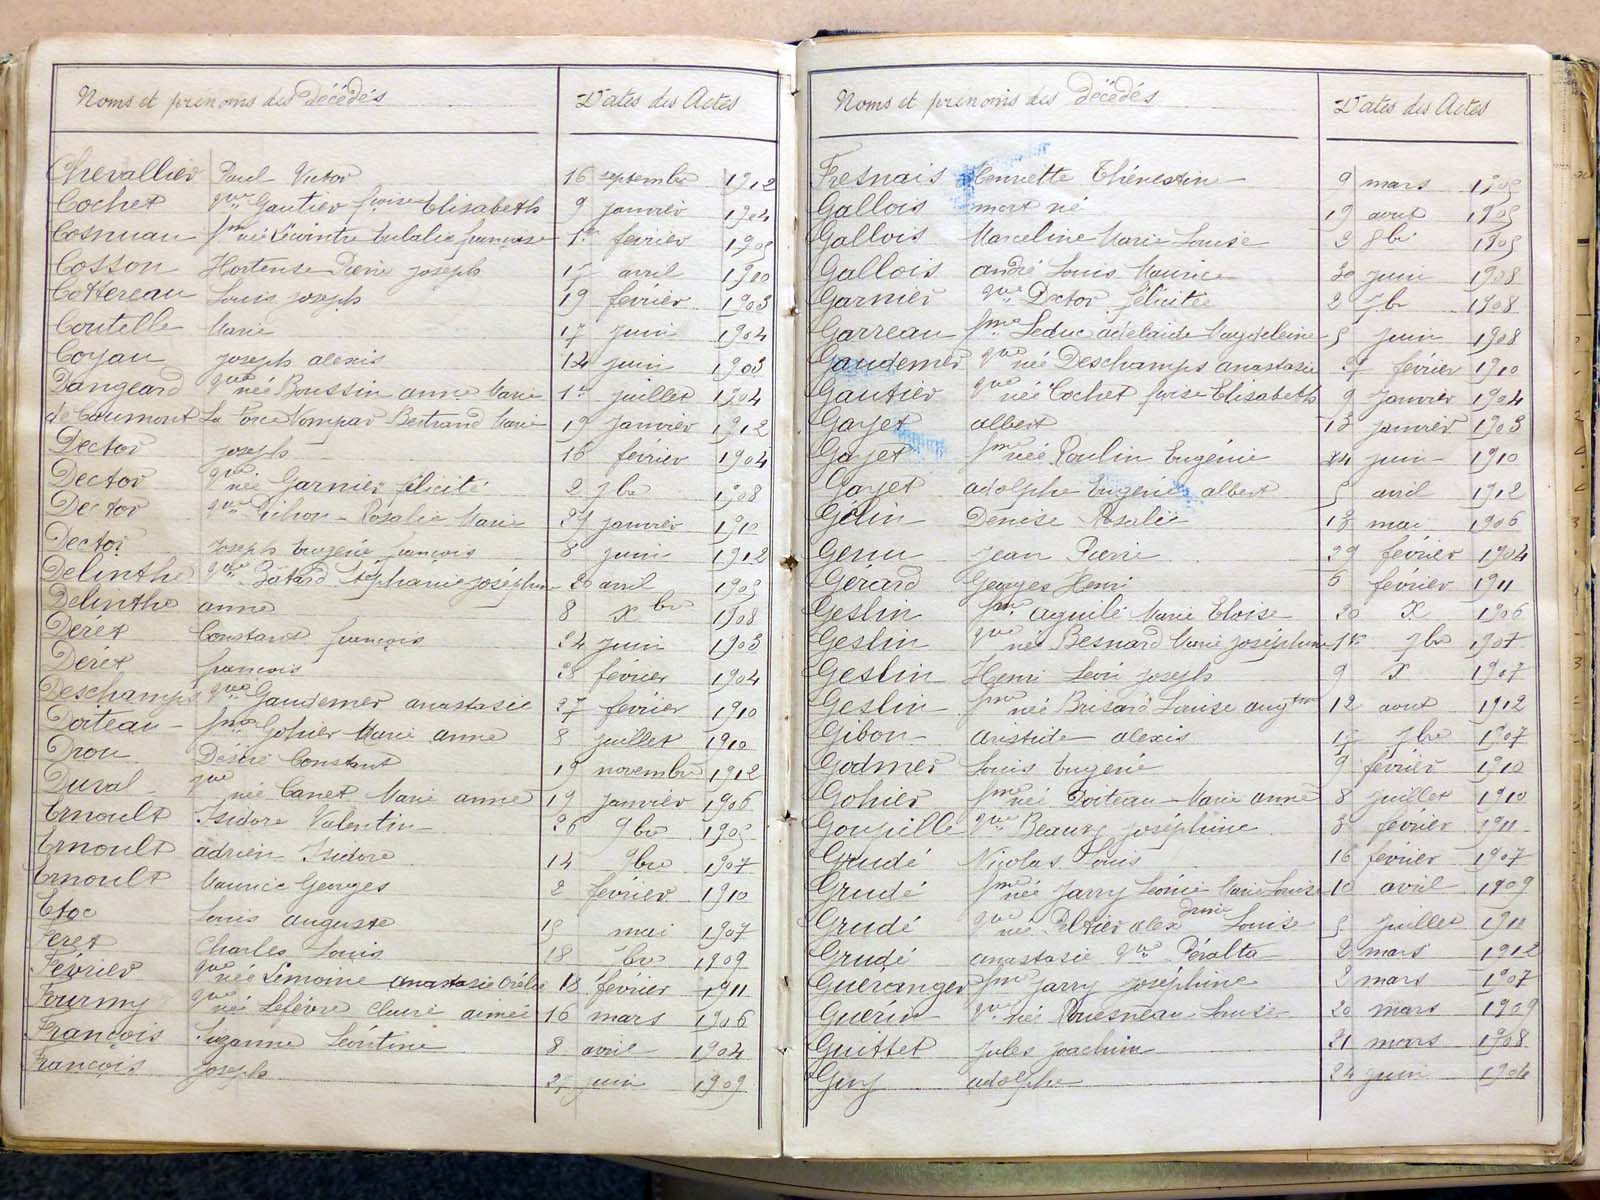 Noms et prénoms des décédés Dates des Actes
Chevallier Paul Victor 16 septembre 1912
Cochet vve Gautier fçoise Elisabeth 9 janvier 1904
Cosnuau fme née Lecointre Eulalie françoise 1er février 1905
Cosson Hortense Pierre joseph 15 avril 1910
Cottereau Louis joseph 19 février 1903
Coutelle Marie 17 juin 1904
Coyau joseph alexis 14 juin 1903
Dangeard vve née Boussin anne Marie 1er juillet 1904
de Caumont La Force Nompar Bertrand Marie 19 janvier 1912
Dector joseph 16 février 1904
Dector vve née Garnier félicité 2 7bre 1908
Dector vve Pichon Rosalie Marie 29 janvier 1910
Dector joseph Eugène françois 8 juin 1912
Delinthe vve Batard Stéphanie joséphine 20 avril 1905
Delinthe anne 8 Xbre 1908
Déret Constant françois 24 juin 1903
Déret françois 28 février 1904
Deschamps vve Gaudemer anastasie 27 février 1910
Doiteau fme Gohier Marie anne 8 juillet 1910
Drou Désiré Constant 19 novembre 1912
Duval vve née Canet Marie anne 19 janvier 1906
Ernoult Isidore Valentin 26 9bre 1905
Ernoult adrien Isidore 14 9bre 1907
Ernoult Maurice Georges 2 février 1910
Etoc Louis auguste 15 mai 1907
Feret Charles Louis 18 1909
Février vve née Lemoine anastasie 18 février 1911
Fourmy vve née Lefèvre Claire aimée 16 mars 1906
François Suzanne Léontine 8 avril 1904
François Joseph 25 juin 1909
Noms et prénoms des décédés Dates des Actes
Fresnais Henriette 9 mars 1905
Gallois mort né 19 aout 1905
Gallois Marceline Marie Louise 3 8bre 1905
Gallois andré Louis Maurice 30 juin 1908
Garnier vve Dector félicité 2 7br 1908
Garreau fme Leduc adelaide Magdeleine 5 juin 1908
Gaudemer vve née Deschamps anastasie 27 février 1910
Gautier vve née Cochet fçoise Elisabeth 9 Janvier 1904
Gayet albert 13 janvier 1903
Gayet fme née Poulin Eugénie 24 juin 1910
Gayet adolphe Eugène albert 5 avril 1912
Gélin Denise Rosalie 13 mai 1906
Genu Jean Pierre 29 février 1904
Gérard Georges Henri 6 février 1911
Geslin fme aguilé Marie Eloise 20 X 1906
Geslin vve née Besnard Marie joséphine 1er 7bre 1907
Geslin Henri Léon joseph 9 X 1907
Geslin fme née Brisard Louise augtine 12 aout 1912
Gibon aristide alexis 17 7bre 1907
Godmer Louis Eugène 9 février 1910
Gohier fme née Doiteau Marie anne 8 juillet 1910
Goupille vve Beaury joséphine 3 février 1911
Grudé Nicolas Louis 16 février 1907
Grudé fme née Jarry Léonie Marie Louise 10 avril 1909
Grudé vve née Peltier alexdrine Louise 5 juillet 1911
Grudé anastasie vve Péralta 2 mars 1912
Guéranger fme Jarry joséphine 2 mars 1907
Guérin vve née Rouesneau Louise 20 mars 1909
Guittet Jules Joachim 21 mars 1908
Guy adolphe 24 juin 1904